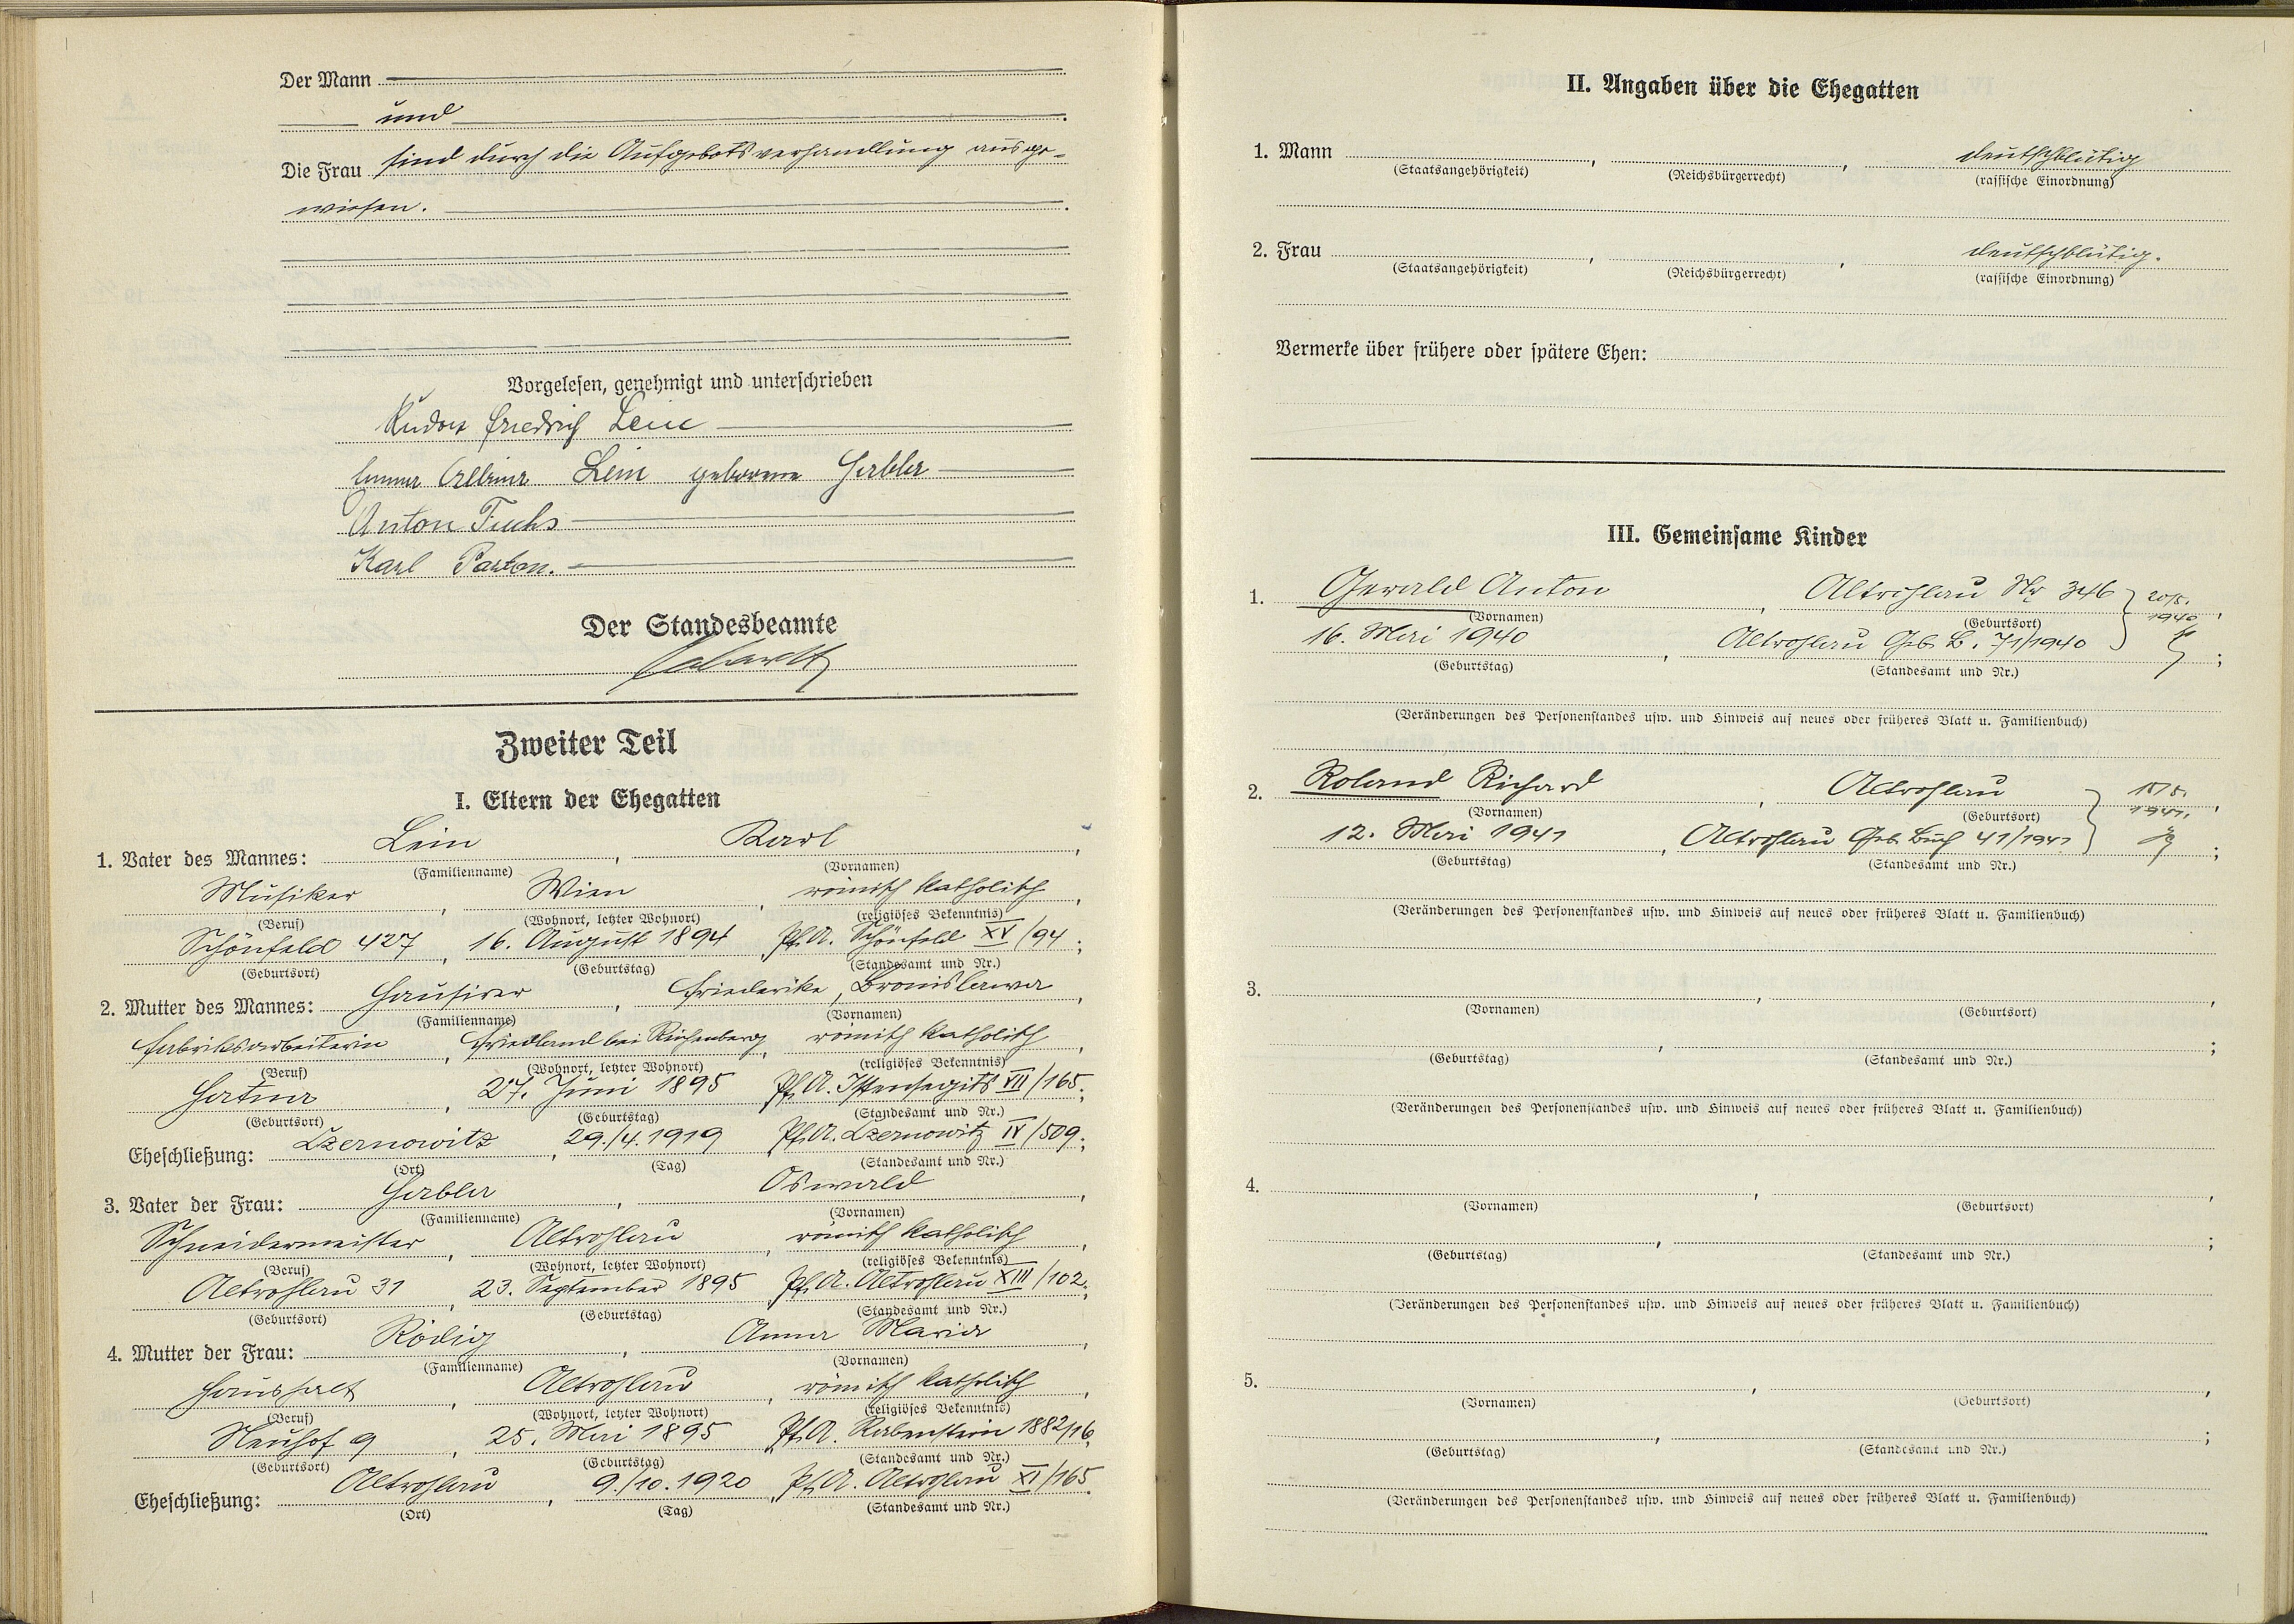 Der Mann
und
Die Frau sind durch die Aufgebotsverhandlung ausge-
wiesen.
Vorgelesen, genehmigt und unterschrieben
Rudolf Friedrich Lein
Anna Albina Lein geborene Habler
Anton Fuchs
Karl Parton.
Der Standesbeamte
Zweiter Teil
I. Eltern der Ehegatten
1. Vater des Mannes: Lein, Karl,
(Familienname) (Vornamen)
Musiker, Wien, römisch katholisch,
(Beruf) (Wohnort, letzter Wohnort) (religiöses Bekenntnis)
Schönfeld 427, 16. August 1894, Pf. A. Schönfeld XV/94;
(Geburtsort) (Geburtstag) (Standesamt und Nr.)
2. Mutter des Mannes: Friederike, Bronislawa,
(Familienname) (Vornamen)
Fabriksarbeiterin, Friedland bei Reichenberg, römisch katholisch,
(Beruf) (Wohnort, letzter Wohnort) (religiöses Bekenntnis)
Hatna, 27. Juni 1895, Pf. A. Istensegits VII/165;
(Geburtsort) (Geburtstag) (Standesamt und Nr.)
Eheschließung: Czernowitz, 29./4. 1919, Pf. A. Czernowitz IV/509;
(Ort) (Tag) (Standesamt und Nr.)
3. Vater der Frau: Habler, Oswald,
(Familienname) (Vornamen)
Schneidermeister, Altrohlau, römisch katholisch,
(Beruf) (Wohnort, letzter Wohnort) (religiöses Bekenntnis)
Altrohlau 31, 23. September 1895, Pf. A. Altrohlau XIII/102;
(Geburtsort) (Geburtstag) (Standesamt und Nr.)
4. Mutter der Frau: Rödig, Anna Maria,
(Familienname) (Vornamen)
Haushalt, Altrohlau, römisch katholisch,
(Beruf) (Wohnort, letzter Wohnort) (religiöses Bekenntnis)
Neuhof 9, 25. Mai 1895, Pf. A. Rabenstein 1882/16,
(Geburtsort) (Geburtstag) (Standesamt und Nr.)
Eheschließung: Altrohlau, 9./10. 1920, Pf. A. Altrohlau XI/165.
(Ort) (Tag) (Standesamt und Nr.)
II. Angaben über die Ehegatten
1. Mann , , deutschblütig
(Staatsangehörigkeit) (Reichsbürgerrecht) (rassische Einordnung)
2. Frau , , deutschblütig.
(Staatsangehörigkeit) (Reichsbürgerrecht) (rassische Einordnung)
Vermerke über frühere oder spätere Ehen:
III. Gemeinsame Kinder
1. Gerald Anton, Altrohlau Nr 346 20/5. 1940,
(Vornamen) (Geburtsort)
16. Mai 1940, Altrohlau Geb. B. 71/1940;
(Geburtstag) (Standesamt und Nr.)
(Veränderungen des Personenstandes usw. und Hinweis auf neues oder früheres Blatt u. Familienbuch)
2. Roland Richard, Altrohlau 15/5. 1941,
(Vornamen) (Geburtsort)
12. Mai 1941, Altrohlau Geb. Buch 41/1941;
(Geburtstag) (Standesamt und Nr.)
(Veränderungen des Personenstandes usw. und Hinweis auf neues oder früheres Blatt u. Familienbuch)
3. , ,
(Vornamen) (Geburtsort)
, ;
(Geburtstag) (Standesamt und Nr.)
(Veränderungen des Personenstandes usw. und Hinweis auf neues oder früheres Blatt u. Familienbuch)
4. , ,
(Vornamen) (Geburtsort)
, ;
(Geburtstag) (Standesamt und Nr.)
(Veränderungen des Personenstandes usw. und Hinweis auf neues oder früheres Blatt u. Familienbuch)
5. , ,
(Vornamen) (Geburtsort)
, ;
(Geburtstag) (Standesamt und Nr.)
(Veränderungen des Personenstandes usw. und Hinweis auf neues oder früheres Blatt u. Familienbuch)